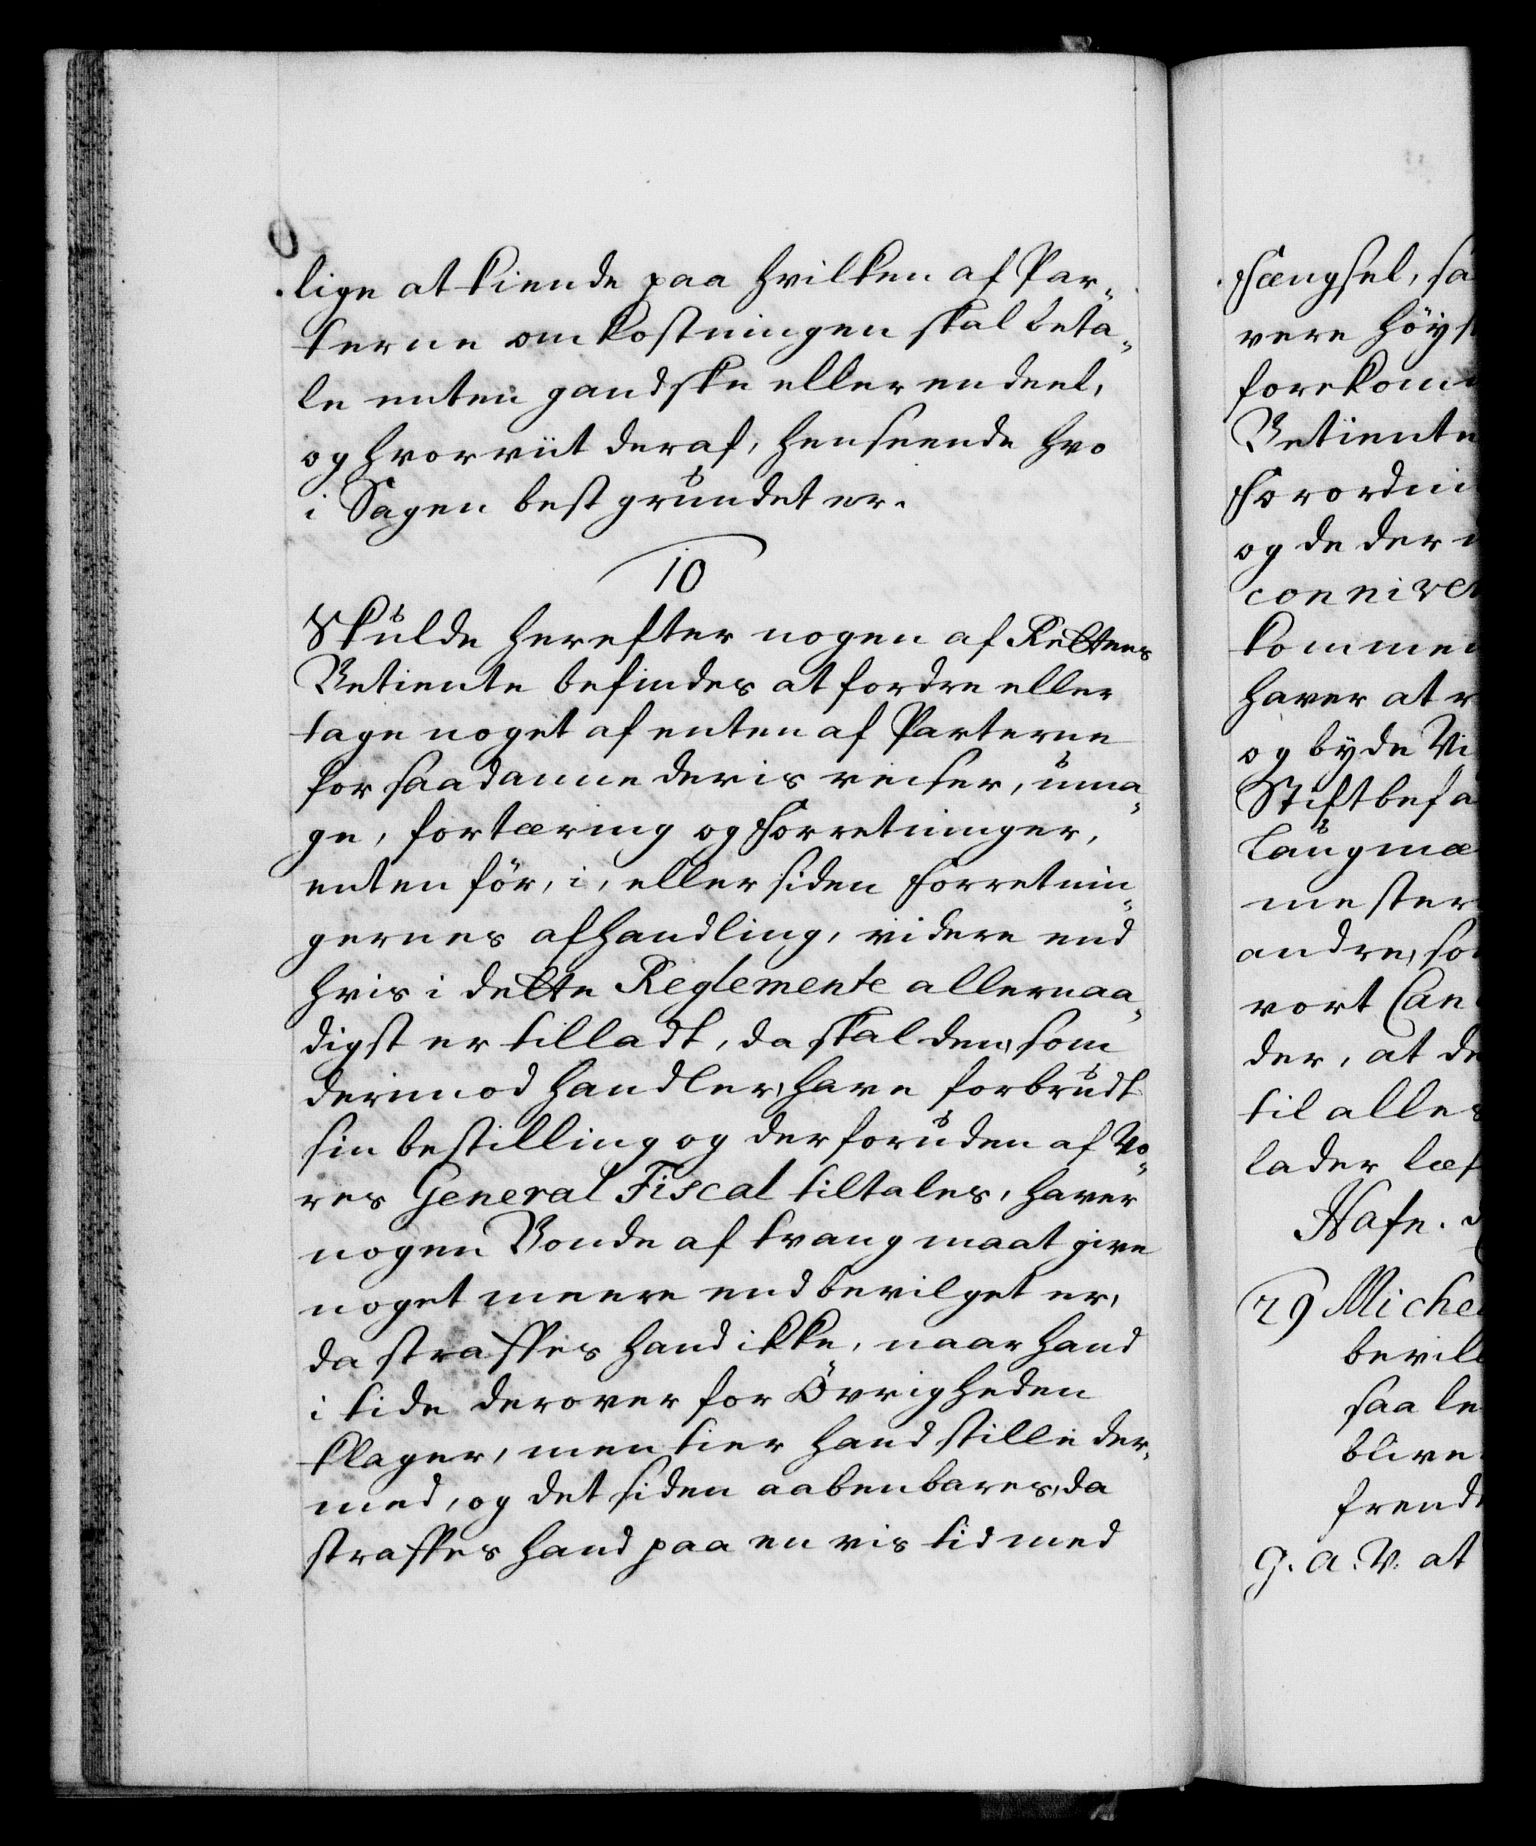 lige at kiende paa hvilken af Par-
terne omkostningen skal beta-
le enten gandske eller en deel,
og hvorviit deraf, henseende hvo
i Sagen best grundet er.
10
Skulde herefter nogen af Rettens
Betiente befindes at fordre eller
tage noget af enten af Parterne
for saadanne deris reiser, uma-
ge, fortæring og Forretninger,
enten før, i, eller siden Forretnin-
gernes afhandling, videre end
hvis i dette Reglemente allernaa-
digst er tilladt, da skal den, som
derimod handler, have forbrudt
sin bestilling og der foruden af Vo-
res General Fiscal tiltales, haver
nogen Bonde af tvang maat give
noget meere end bevilget er,
da straffes hand ikke, naar hand
i tide derover for Øvrigheden
klager, men tier hand stille der-
med, og det siden aabenbares, da
straffes hand paa en vis tid med
Fængsel, sa
vere høys
forekom
Betiente
Forordni
og de der
conniver
kommen
haver at
og byde Vi
Stiftbefa
Laugmæ
mester
andre, so
vort Can
der, at de
til alles
lader læs
Hafn.
29 Miche
bevill
saa le
blive
frend
G. A. V. at